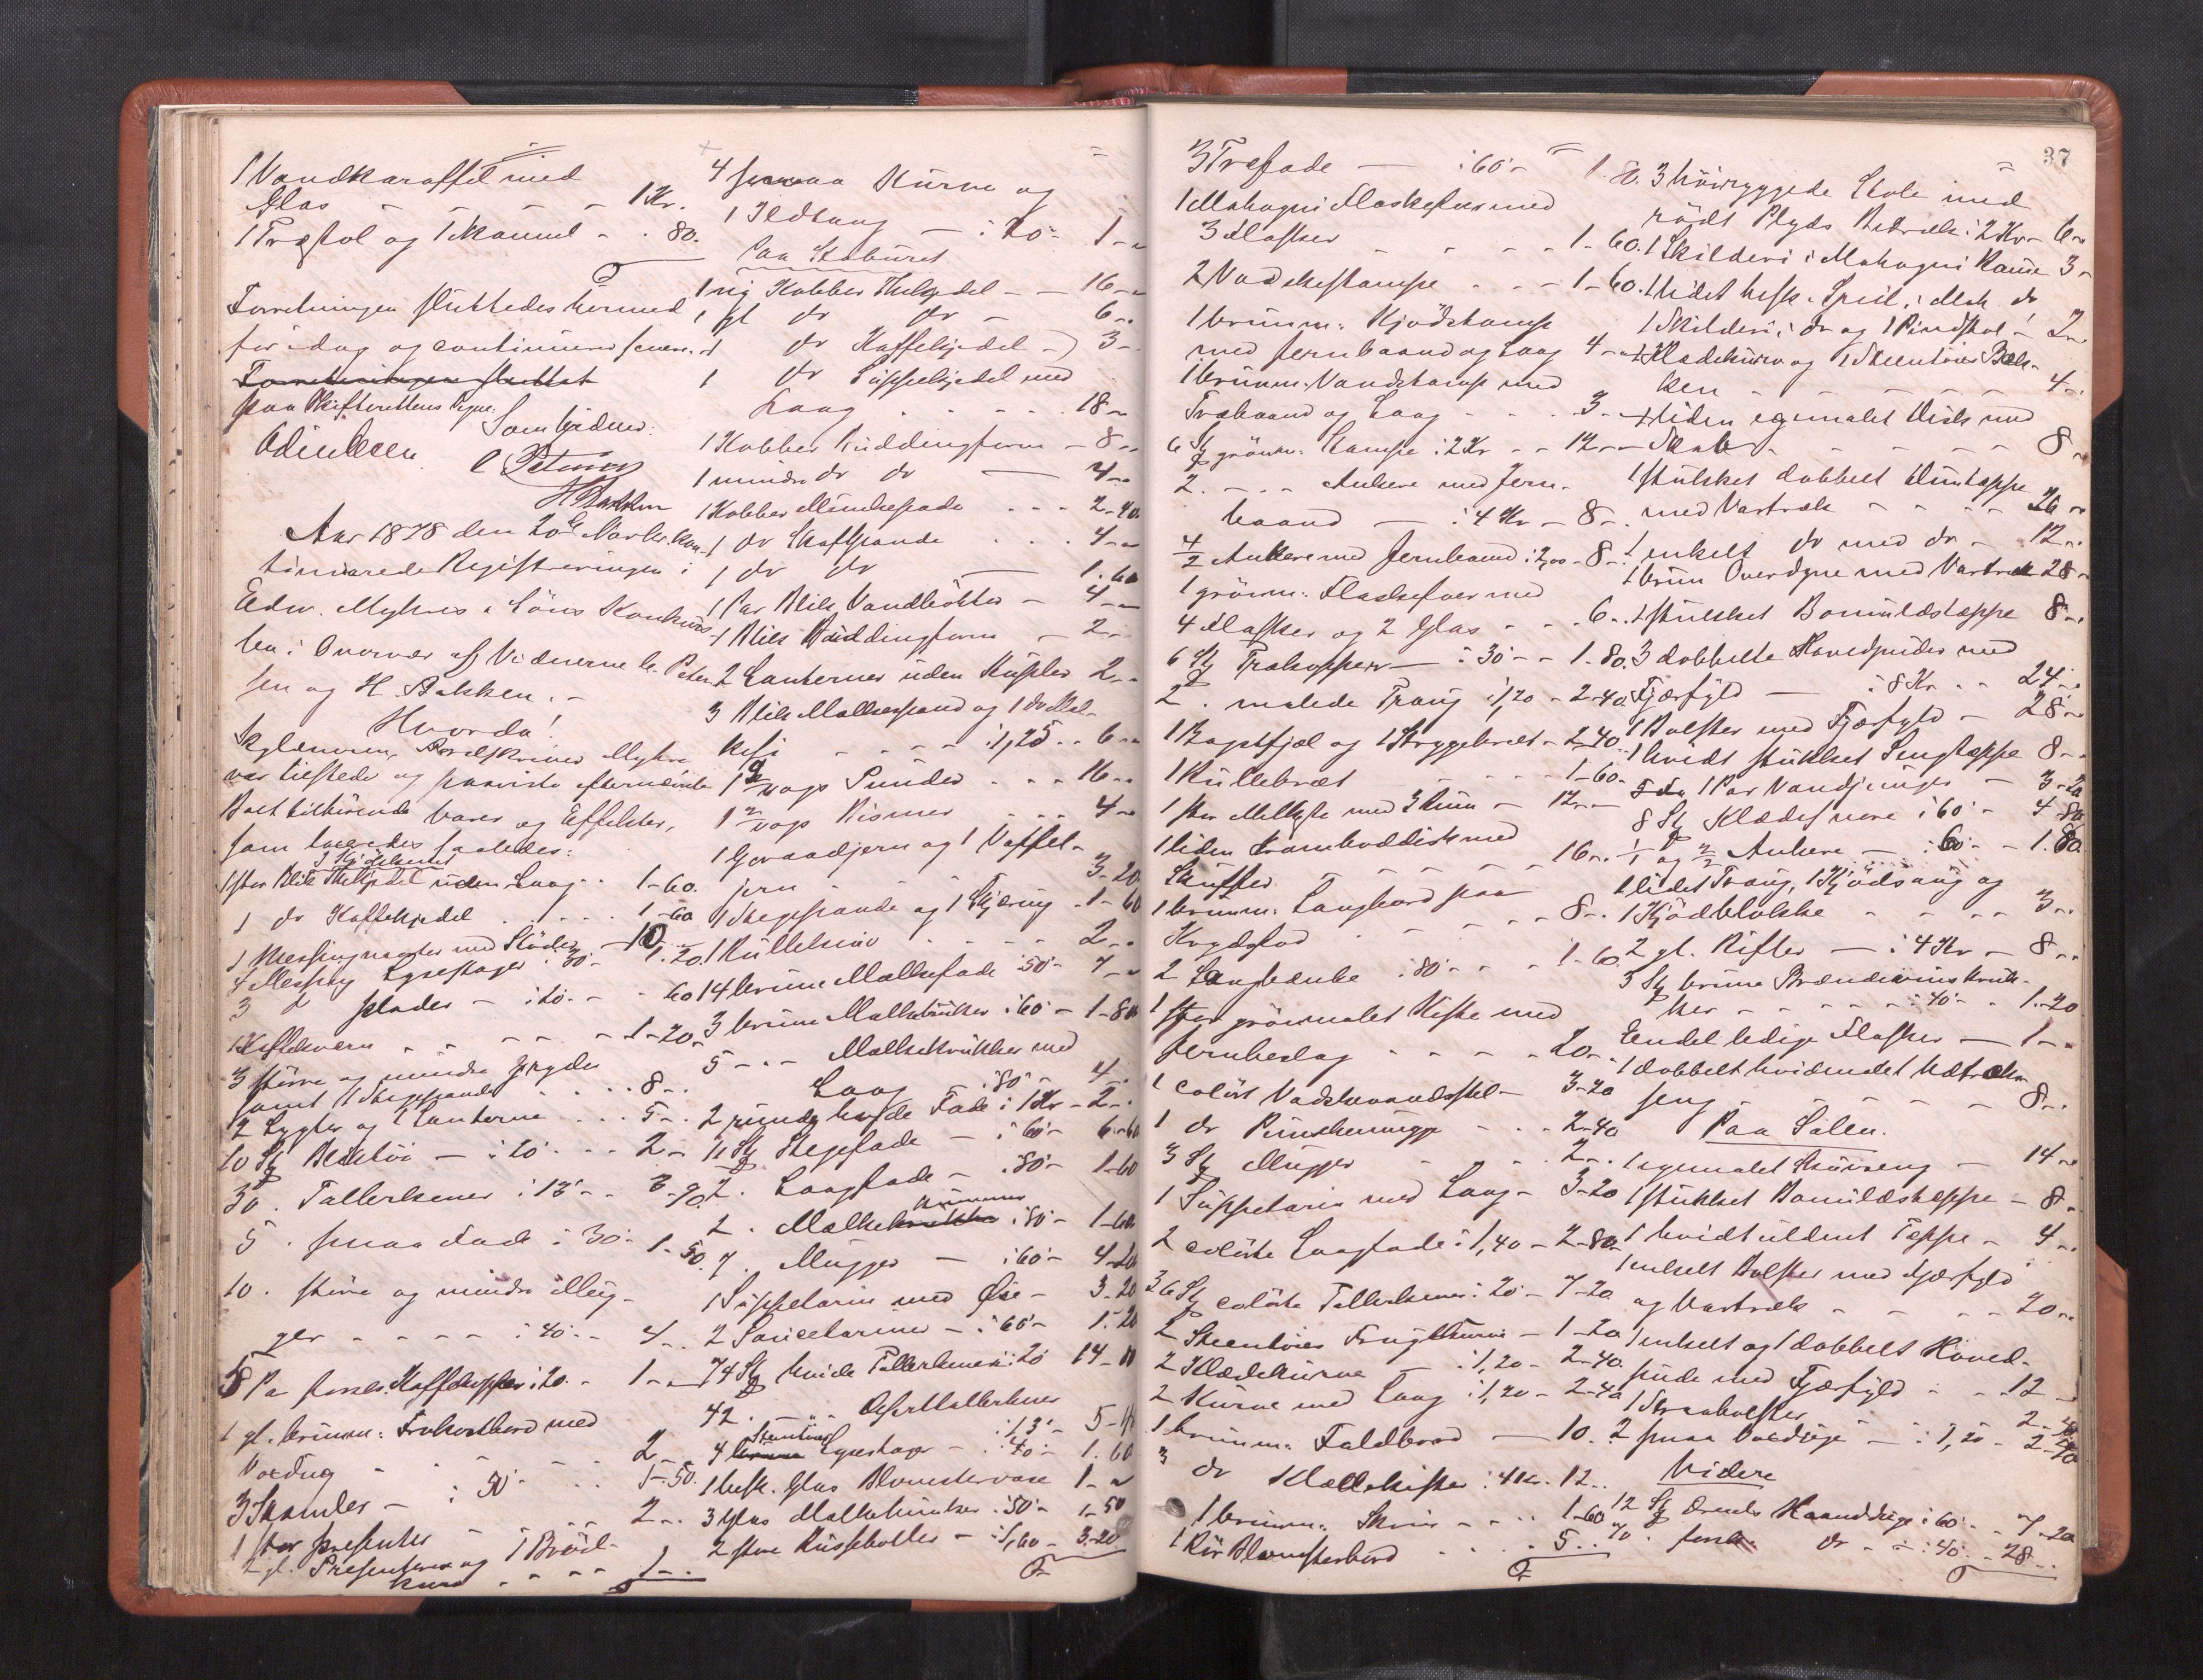 1 Vandkaraffel med
Glas - - - - 1 Kr.
1 Træstol og 1 Skammel - . 80.
Forretningen sluttedes hermed
for idag og continueres senere.
Forretningen sluttet
paa Skifterettens Vegne:
Som Vidner:
C Petersen
H Bakken
Aar 1878 den 20de Novbr. kon-
tinuerede Registreringen i
Edw. Myhres & Söns Konkurs-
bo i Overvær af Vidnerne C. Peter-
sen og H. Bakken. -
Hvorda!
Skyldneren, Myhre
var tilstede og paaviste efternævnte
Boet tilhörende Varer og Effekter,
som taxeredes saaledes:
1 stor Blik Thekjedel uden Laag . . 1-60.
1 do Kaffekjedel . . . . . 1-60
1 Messingmorter med Stöder - 10
4 Messing Lysestager : 30 - 1. 20.
3 do plader - : 20. - . 60
1 Kaffekværn - - - - - 1-20
3 större og mindre Gryder
samt 1 Stegepande . . . 8-.
2 Lygter og 1 Lanterne . . . 5-.
10 St Bliktöi - : 20. . . 2-
30 . Tallerkener : 13. - - 3-90
5 . smaa Fade : 30. 1. 50.
10 . större og mindre Mug-
ger - - - - : 40. - 4 -
5 Pa porcl. Kaffekopper : 20. - 1-
1 gl. brunm: Frokostbord med
Voxdug - - - - - 2
3 Skamler - : 50. . . 1-50.
1 stor Presenter - - - 2..
2 gl. Presentere og 1 Bröd-
kurv - - - - - 1-.
4 smaa Kurve og
1 Ildtang - : 20 - 1 -
Paa Staburet
1 ny Kobber Thekjedel - - 16 -
1 gl do do - 6 -
1 do Kaffekjedel - 3 -
1 do Suppekjedel med
Laag . . . . . 18 -
1 Kobber Puddingform - 8 -
1 mindre do do - 4 -
1 Kobber Munkepande . . . 2-40
1 do Skaftpande . . . 4 -
1 do do - 1. 60
1 Par Blik Vandbötter - 4 -
1 Blik Puddingform - 2 -
2 Lanterner uden Kupler 2 -
3 Blik Melkespand og 1 do Mel-
kesi - - - - : 1,25 . . 6 -
1 Vogs Punder . . . 16 -
1 Vogs Bismer . . . 4 -
1 Goraadjern og 1 Vaffel-
jern - - - - - 3-20
1 Stegepande og 1 Skjæring - 1-60
1 Rullekniv . . . . . 2 -
14 brune Melkefade : 50 - 7 -
3 brune Melkekrukker : 60 - 1-80
5 - - - Melkekrukker med
Laag : 80 - 4 -
2 runde hvide Fade : 1 Kr - 2 - .
11 St Stegefade - : 60 - 6-60
2 . Langfade - : 80 - 1-60
2 . Melkekrukke kummer : 80 - 1-60
7 . Mugger - : 60 - 4-20
1 Suppeterin med Öse - 3-20
2 Saucetariner - : 60 - 1. 20
74 St hvide Tallerkener : 20 14-80
42 . - - Deserttallerkener
: 13 - 5-46
4 brune Steentöies Lysestager - : 40 - 1. 60
1 besk. Glas Blomstervase 1 -
3 Glas Melkekrukker : 50 - 1-50
2 store Punschboller - : 1,60 - 3-20
37
3 Træfade - : 60 - 1. 80.
1 Mahogni Flaskefoer med
3 Flasker - - - - 1-60.
2 Vadskestampe . . - 1-60.
1 brunm: Kjödstampe
med Jernbaand og Laag 4 -
1 brunm: Vandstampe med
Træbaand og Laag - - . 3 -
6 St grönm: Stampe : 2 Kr - - 12 -
2. - . - Ankere med Jern-
baand - : 4 Kr - 8 - .
4/2 Ankere med Jernbaand : 2,00 - 8 - .
1 grönm: Flaskefoer med
4 Flasker og 2 Glas - - - 6 - .
6 St Trækopper - : 30 - - 1. 80.
2 . malede Traug : 1,20 - 2-40.
1 Bagstfjæl og 1 Strygebræt - 2-40.
1 Rullebræt - - - - 1-60.
1 stor Melkiste med 3 Rum - 12 -
1 liden Kramboddisk med
Skuffer - - - - - 16 - .
1 brunm: Langbord paa
Krydsfod - - - - - 8 - .
2 Langbænke : 80 - - - 1-60.
1 stor grönmalet Kiste med
Jernbeslag - - - - - 20 - .
1 colört Vadskevandsstel - 3-20
1 do Punskemugge . . . 2-40
3 St Mugger . . . . . 2 - .
1 Suppeterin med Laag - 3-20
2 colörte Langfade : 1,40 - 2-80.
36 St colörte Tallerkener : 20 - 7-20
2 Steentöies Frugtkurve - 1-20
2 Klædekurve - : 1,20 - 2-40
2 Kurve med Laag : 1,20 - 2-40
1 brunm: Foldbord - 10.
3 do Klædekister : 4 Kr. 12 . .
1 brunm: Skrin - - - 1-60
1 Rör Blomsterbord . . . . 5. .
3 höirygggede Stole med
rödt Plyds Betræk : 2 Kr - 6 -
1 Skilderi i Mahogni Ramme 3 -
1 lidet besk. Speil i Mah. do
1 Skilderi i do og 1 Pindstol - 2 -
1 Klædekurv og 1 Steentöies Bæk-
ken - - - - - 4 - .
1 liden egemalet Disk med
Skab - - - - - 8 -
1 stukket dobbelt Duntæppe
med Vartræk - - - - 26 -
1 enkelt do med do - 12 - .
1 brun Overdyne med Vartræk 28 -
1 stukket Bomuldstæppe 8 - .
3 dobbelte Hovedputer med
Fjærfyld - : 8 Kr . . 24 - .
1 Bolster med Fjærfyld - 28 -
1 hvidt stukket Sengtæppe 8 - .
1 Par Vandsænger - 3-20
8 St Klædesnore : 60 - 4-80
1/1 og 2/2 Ankere - : 60 - - 1. 80
1 lidet Traug, 1 Kjödtraug og
1 Kjödblokke - - - - 3 - .
2 gl. Rifler - : 4 Kr - 8 - .
3 St brune Brændevinskruk-
ker - - - - : 40 - . 1-20
Endel ledige Flasker - 1 - .
1 dobbelt hvidmalet Udtræk-
seng - - - - - 8 - .
Paa Salen.
1 egemalet Skuvseng - 14 -
1 stukket Bomuldstæppe - 8 -
1 hvidt uldent Teppe - 4 - .
1 enkelt Bolster med Fjærfyld
og Vartræk - - - - 20 - .
1 enkelt og 1 dobbelt Hoved-
pude med Fjærfyld - - 12 -
1 Straabolster 2-40
2 smaa Voxduge - : 1,20 - 2-40
Videre
12 St Drells Haandduge : 60 - . 7-20
70 . forsk. do - - : 40. - 28 - .